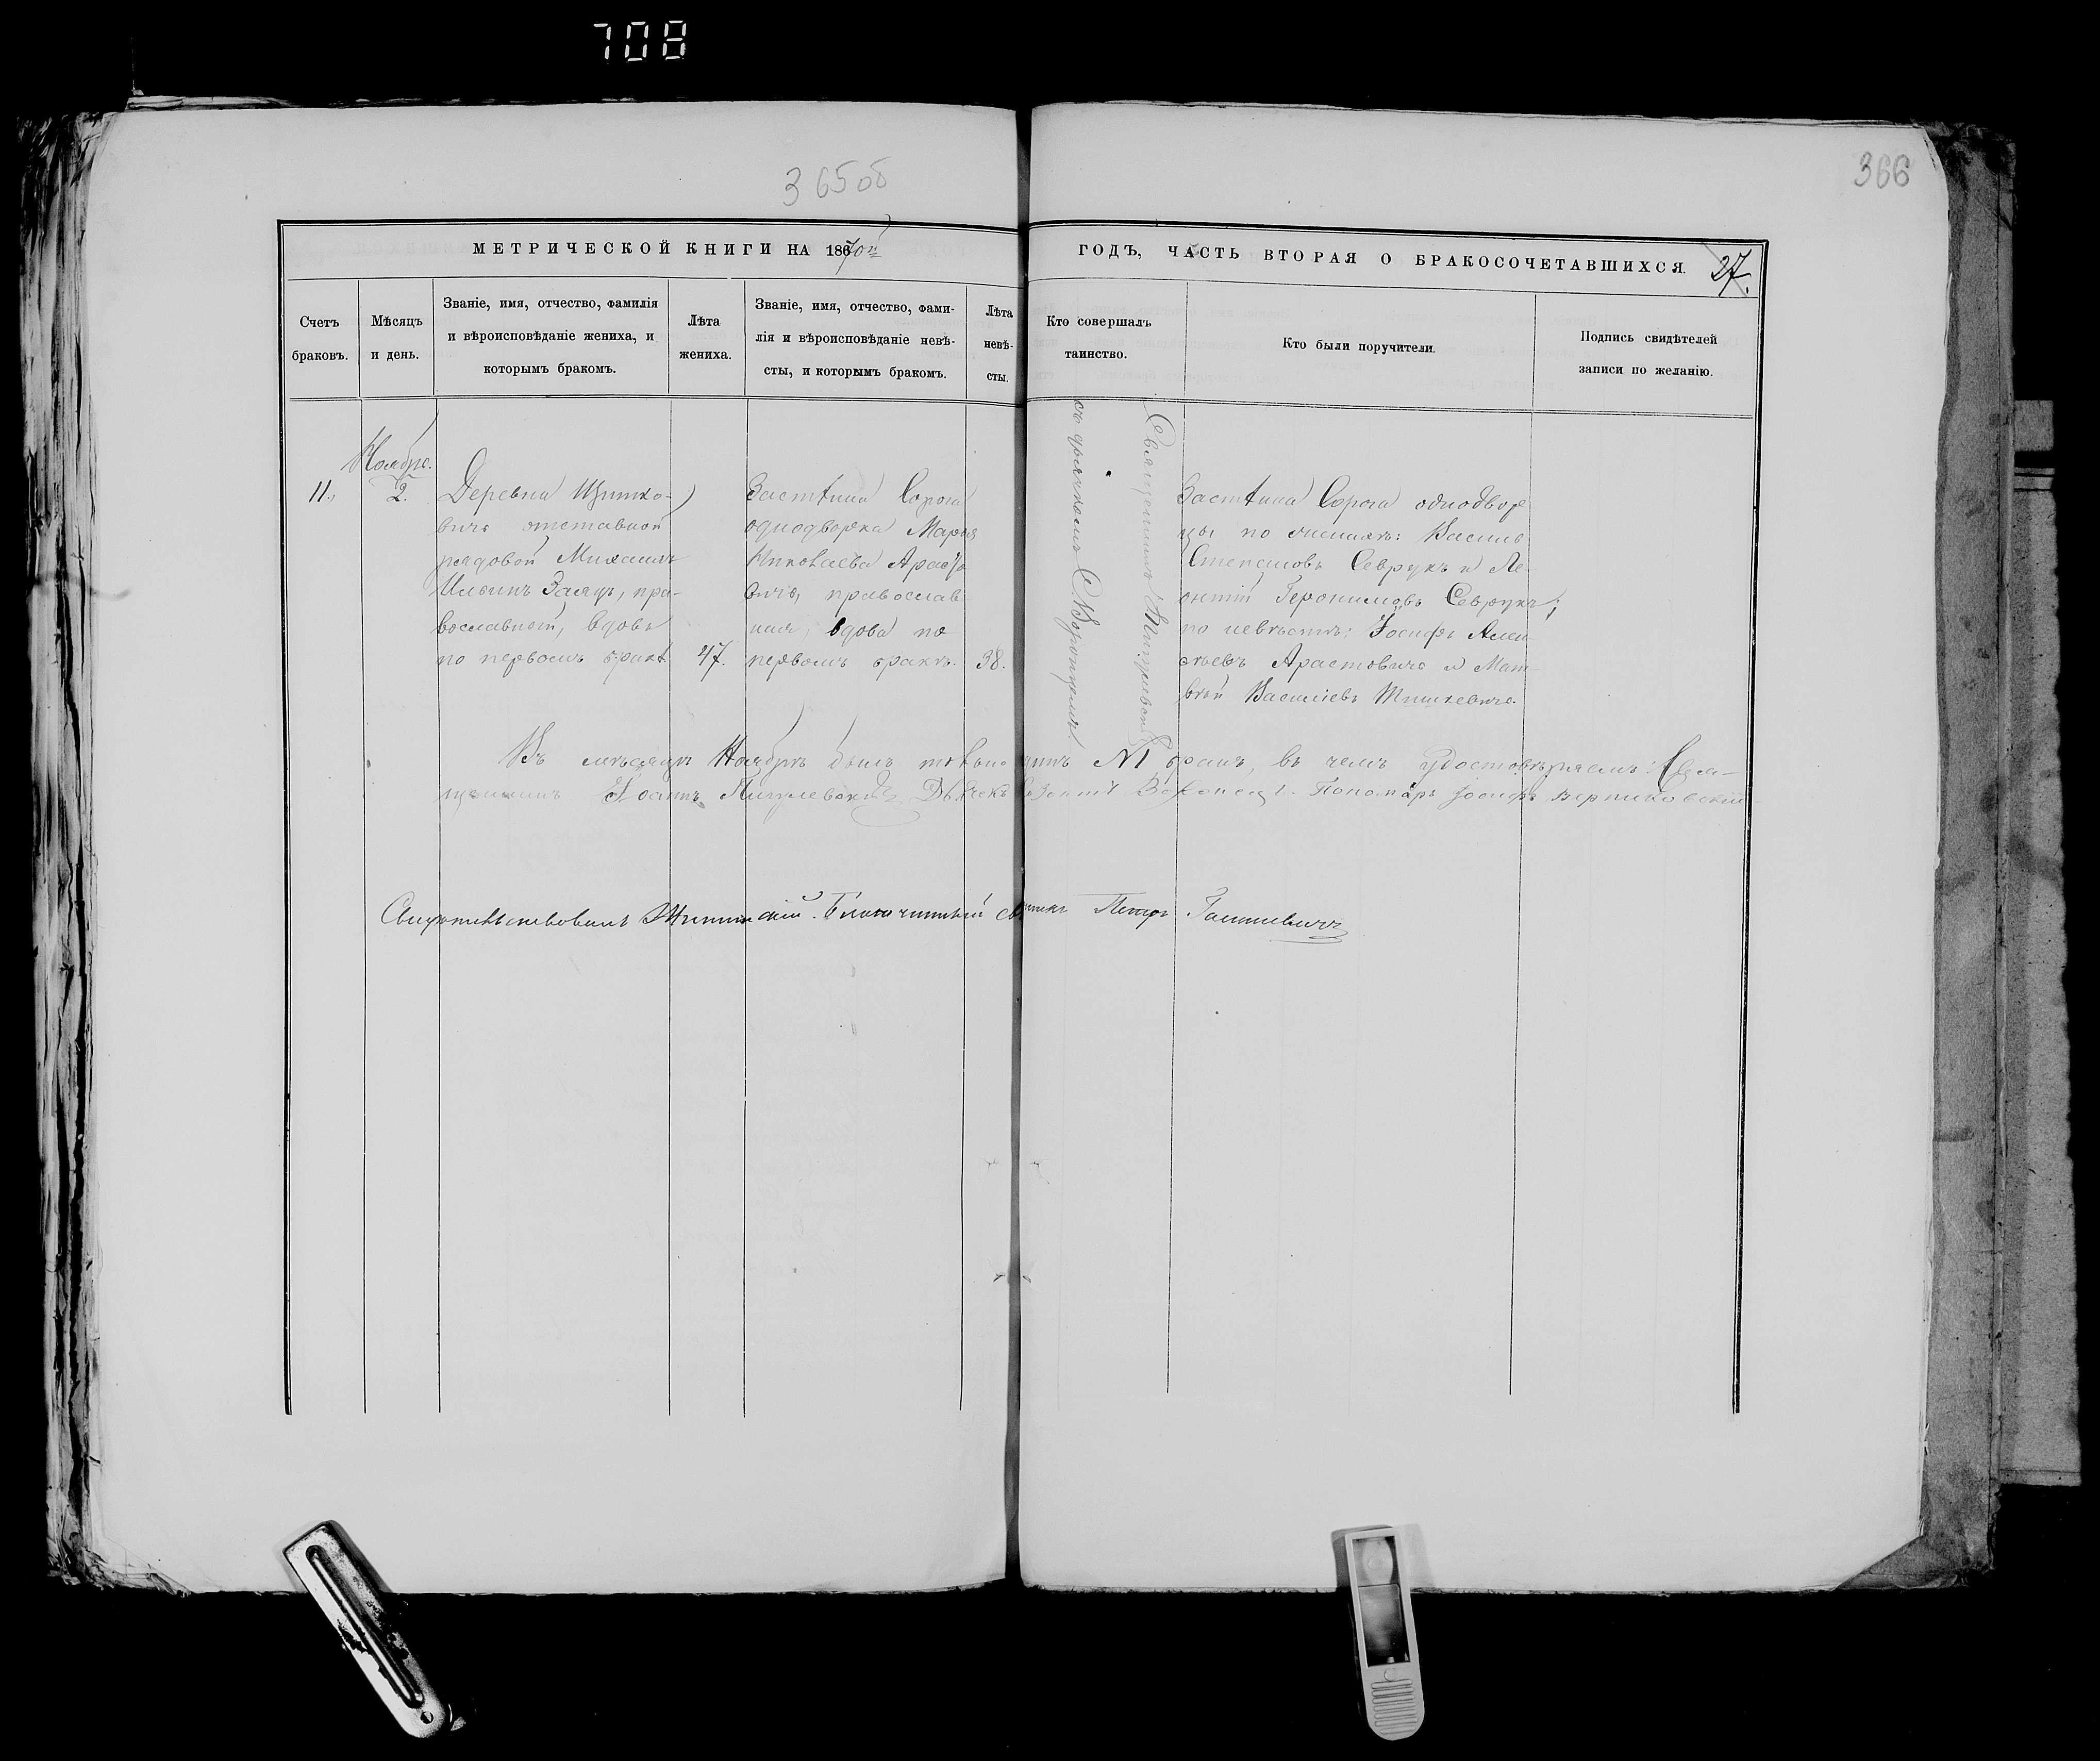 708
365об
366
МЕТРИЧЕСКОЙ КНИГИ НА 1870й
ГОДЪ, ЧАСТЬ ВТОРАЯ О БРАКОСОЧЕТАВШИХСЯ.
27.
Счетъ
браковъ.
Мѣсяцъ
и день.
Званіе, имя, отчество, фамилія
и вѣроисповѣданіе жениха, и
которымъ бракомъ.
Лѣта
жениха.
Званіе, имя, отчество, фами-
лія и вѣроисповѣданіе невѣ-
сты, и которымъ бракомъ.
Лѣта
невѣ-
сты.
Кто совершалъ
таинство.
Кто были поручители.
Подпись свидѣтелей
записи по желанію.
11.
Ноября.
2.
Деревни Щитко-
вичъ отставной
рядовой Михаилъ
Ильинъ Заяцъ, пра-
вославный, вдовъ
по первомъ бракѣ
47.
Застѣнка Сорога
однодворка Марья
Николаева Арасто
вичъ, православ
ная, вдова по
первомъ бракѣ.
38.
Священникъ
съ дьячкомъ
Застѣнка Сорога однодвор
цы по женихѣ: Василь
Степановъ Севрукъ и Ле-
онтій Геронимовъ Севрукъ;
по невѣстѣ: Іосифъ Алек
сѣевъ Арастовичъ и Мат-
вѣй Васильевъ Тишкевичъ.
Въ мѣсяцѣ Ноябрѣ былъ только одинъ №1 бракъ, въ чемъ удостовѣряемъ: Свя-
щенникъ Іоаннъ Дьячекъ Пономарь Іосифъ Вержиковскій
Свидѣтельствовалъ Благочинный Петръ